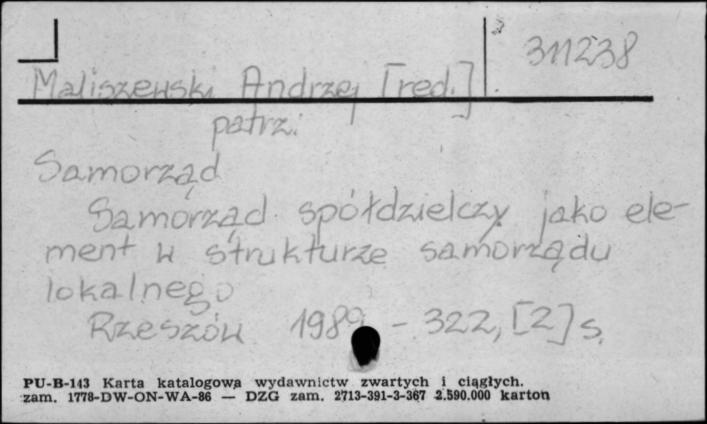 311238
Maliszewski Andrzej [red.]
patrz:
Samorząd
Samorząd spółdzielczy jako ele-
ment w strukturze samorządu
lokalnego
Rzeszów 1989 - 322, [2] s.
PU-B-143 Karta katalogowa wydawnictw zwartych i ciągłych.
zam. 1778-DW-ON-WA-86 — DZG zam. 2713-391-3-367 2.590.000 karton